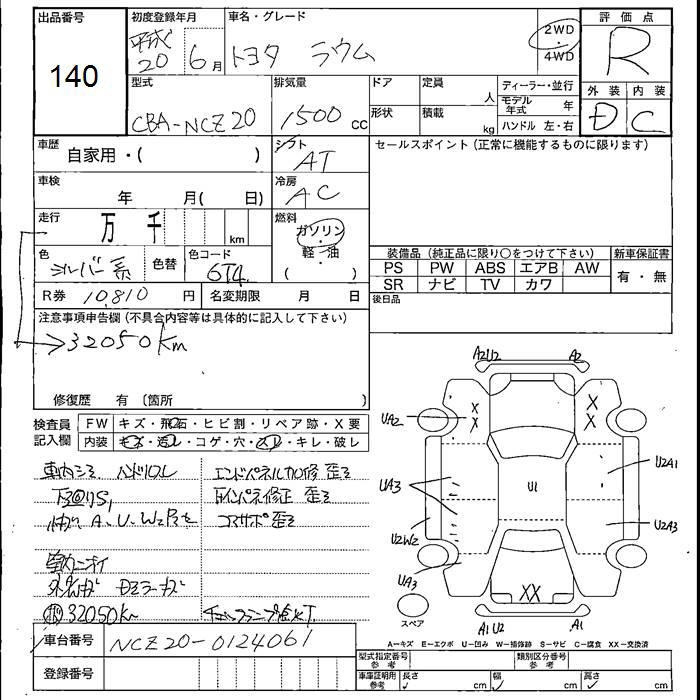 出品番号 初度登録年月 車名・グレード 評価点
140 平成 20 6月 トヨタ ラウム 2WD・4WD R
型式 排気量 ドア 定員 人 ディーラー・並行 外装 内装
CBA-NCZ20 1500 CC 形状 積載 kg モデル年式 年 D C
ハンドル 左・右
車歴 自家用・( ) シフト AT セールスポイント(正常に機能するものに限ります)
車検 年 月( 日) 冷房 AC
走行 万 千 km 燃料 ガソリン・軽・油 ( )
色 シルバー系 色替 色コード 6T4 装備品(純正品に限り○をつけて下さい) 新車保証書
PS PW ABS エアB AW 有・無
SR ナビ TV カワ
R券 10,810 円 名変期限 月 日 後日品
注意事項申告欄(不具合内容等は具体的に記入して下さい)
→32050Km
修復歴 有 (箇所 )
検査員記入欄 FW キズ・飛石・ヒビ割・リペア跡・X要
内装 キズ・汚レ・コゲ・穴・スレ・キレ・破レ
車内シミ ハンドルスレ エンドパネル加修 歪ミ
下回りS, インパネ修正 歪ミ
A、U、W コアサポ 歪ミ
室内ニオイ
32050Km
車台番号 NCZ20-0124061
登録番号
A2U2 A2
UA2 X X X X
UA3 U1 U2A1
U2W2 U2A3
UA3 XX
スペア A1 U2 A1
A-キズ E-エクボ U-凹み W-補修跡 S-サビ C-腐食 XX-交換済
型式指定番号 参考 類別区分番号 参考
車庫証明用 参考 長さ 幅 cm 高さ cm